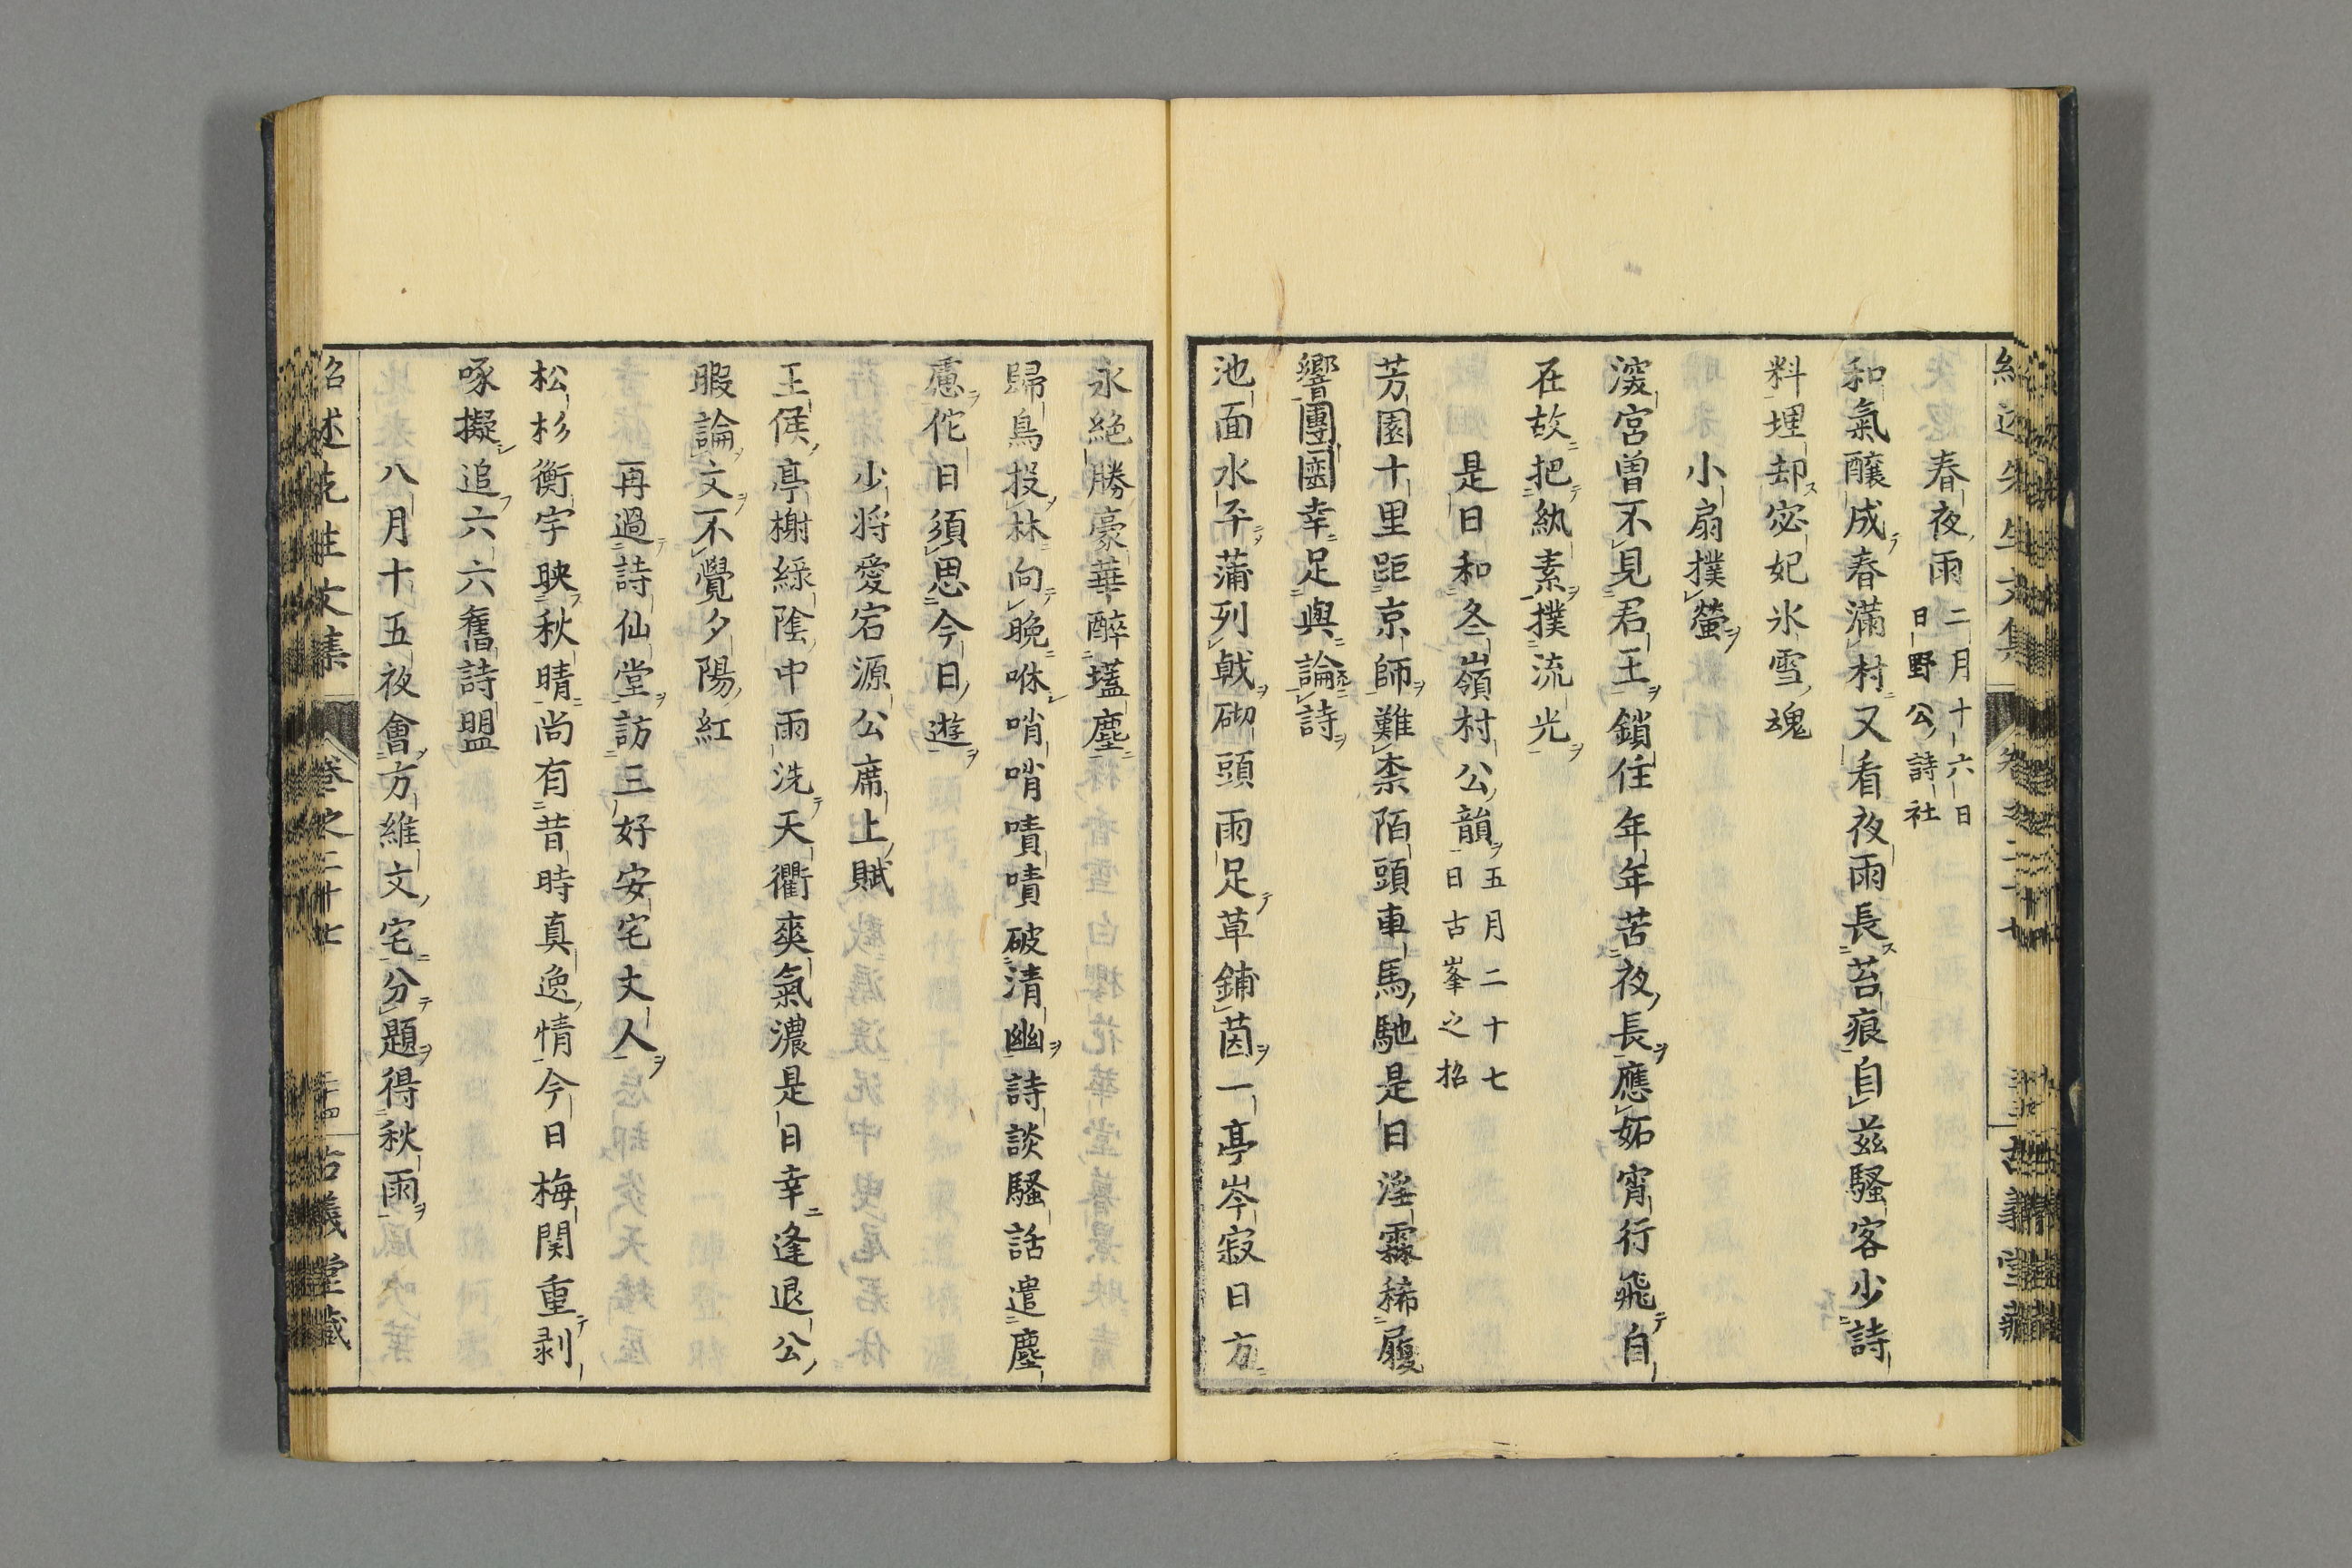 春夜雨 二月十六日
日野公詩社
和氣釀成春滿村又看夜雨長苔痕自茲騷客少詩
料埋却宓妃氷雪魂
小扇撲螢
深宮曽不見君王鎖住年年苦夜長應妬宵行飛自
在故把紈素撲流光
是日和冬嶺村公韻 五月二十七
日古峯之招
芳園十里距京師難柰陌頭車馬馳是日淫霖稀履
響團圞幸足與論詩
池面水平蒲列戟砌頭雨足草鋪茵一亭岑寂日方
永絕勝豪華醉𡏖塵
歸鳥投林向晚咻哨哨嘖嘖破清幽詩談騷話遣塵
慮佗日須思今日遊
少将愛宕源公席上賦
王侯亭榭綠陰中雨洗天衢爽氣濃是日幸逢退公
暇論文不覺夕陽紅
再過詩仙堂訪三好安宅丈人
松杉衡宇映秋晴尚有昔時真逸情今日梅関重剥
啄擬追六六舊詩盟
八月十五夜會方維文宅分題得秋雨
紹述先生文集 卷之二十七 二十四 古義堂藏